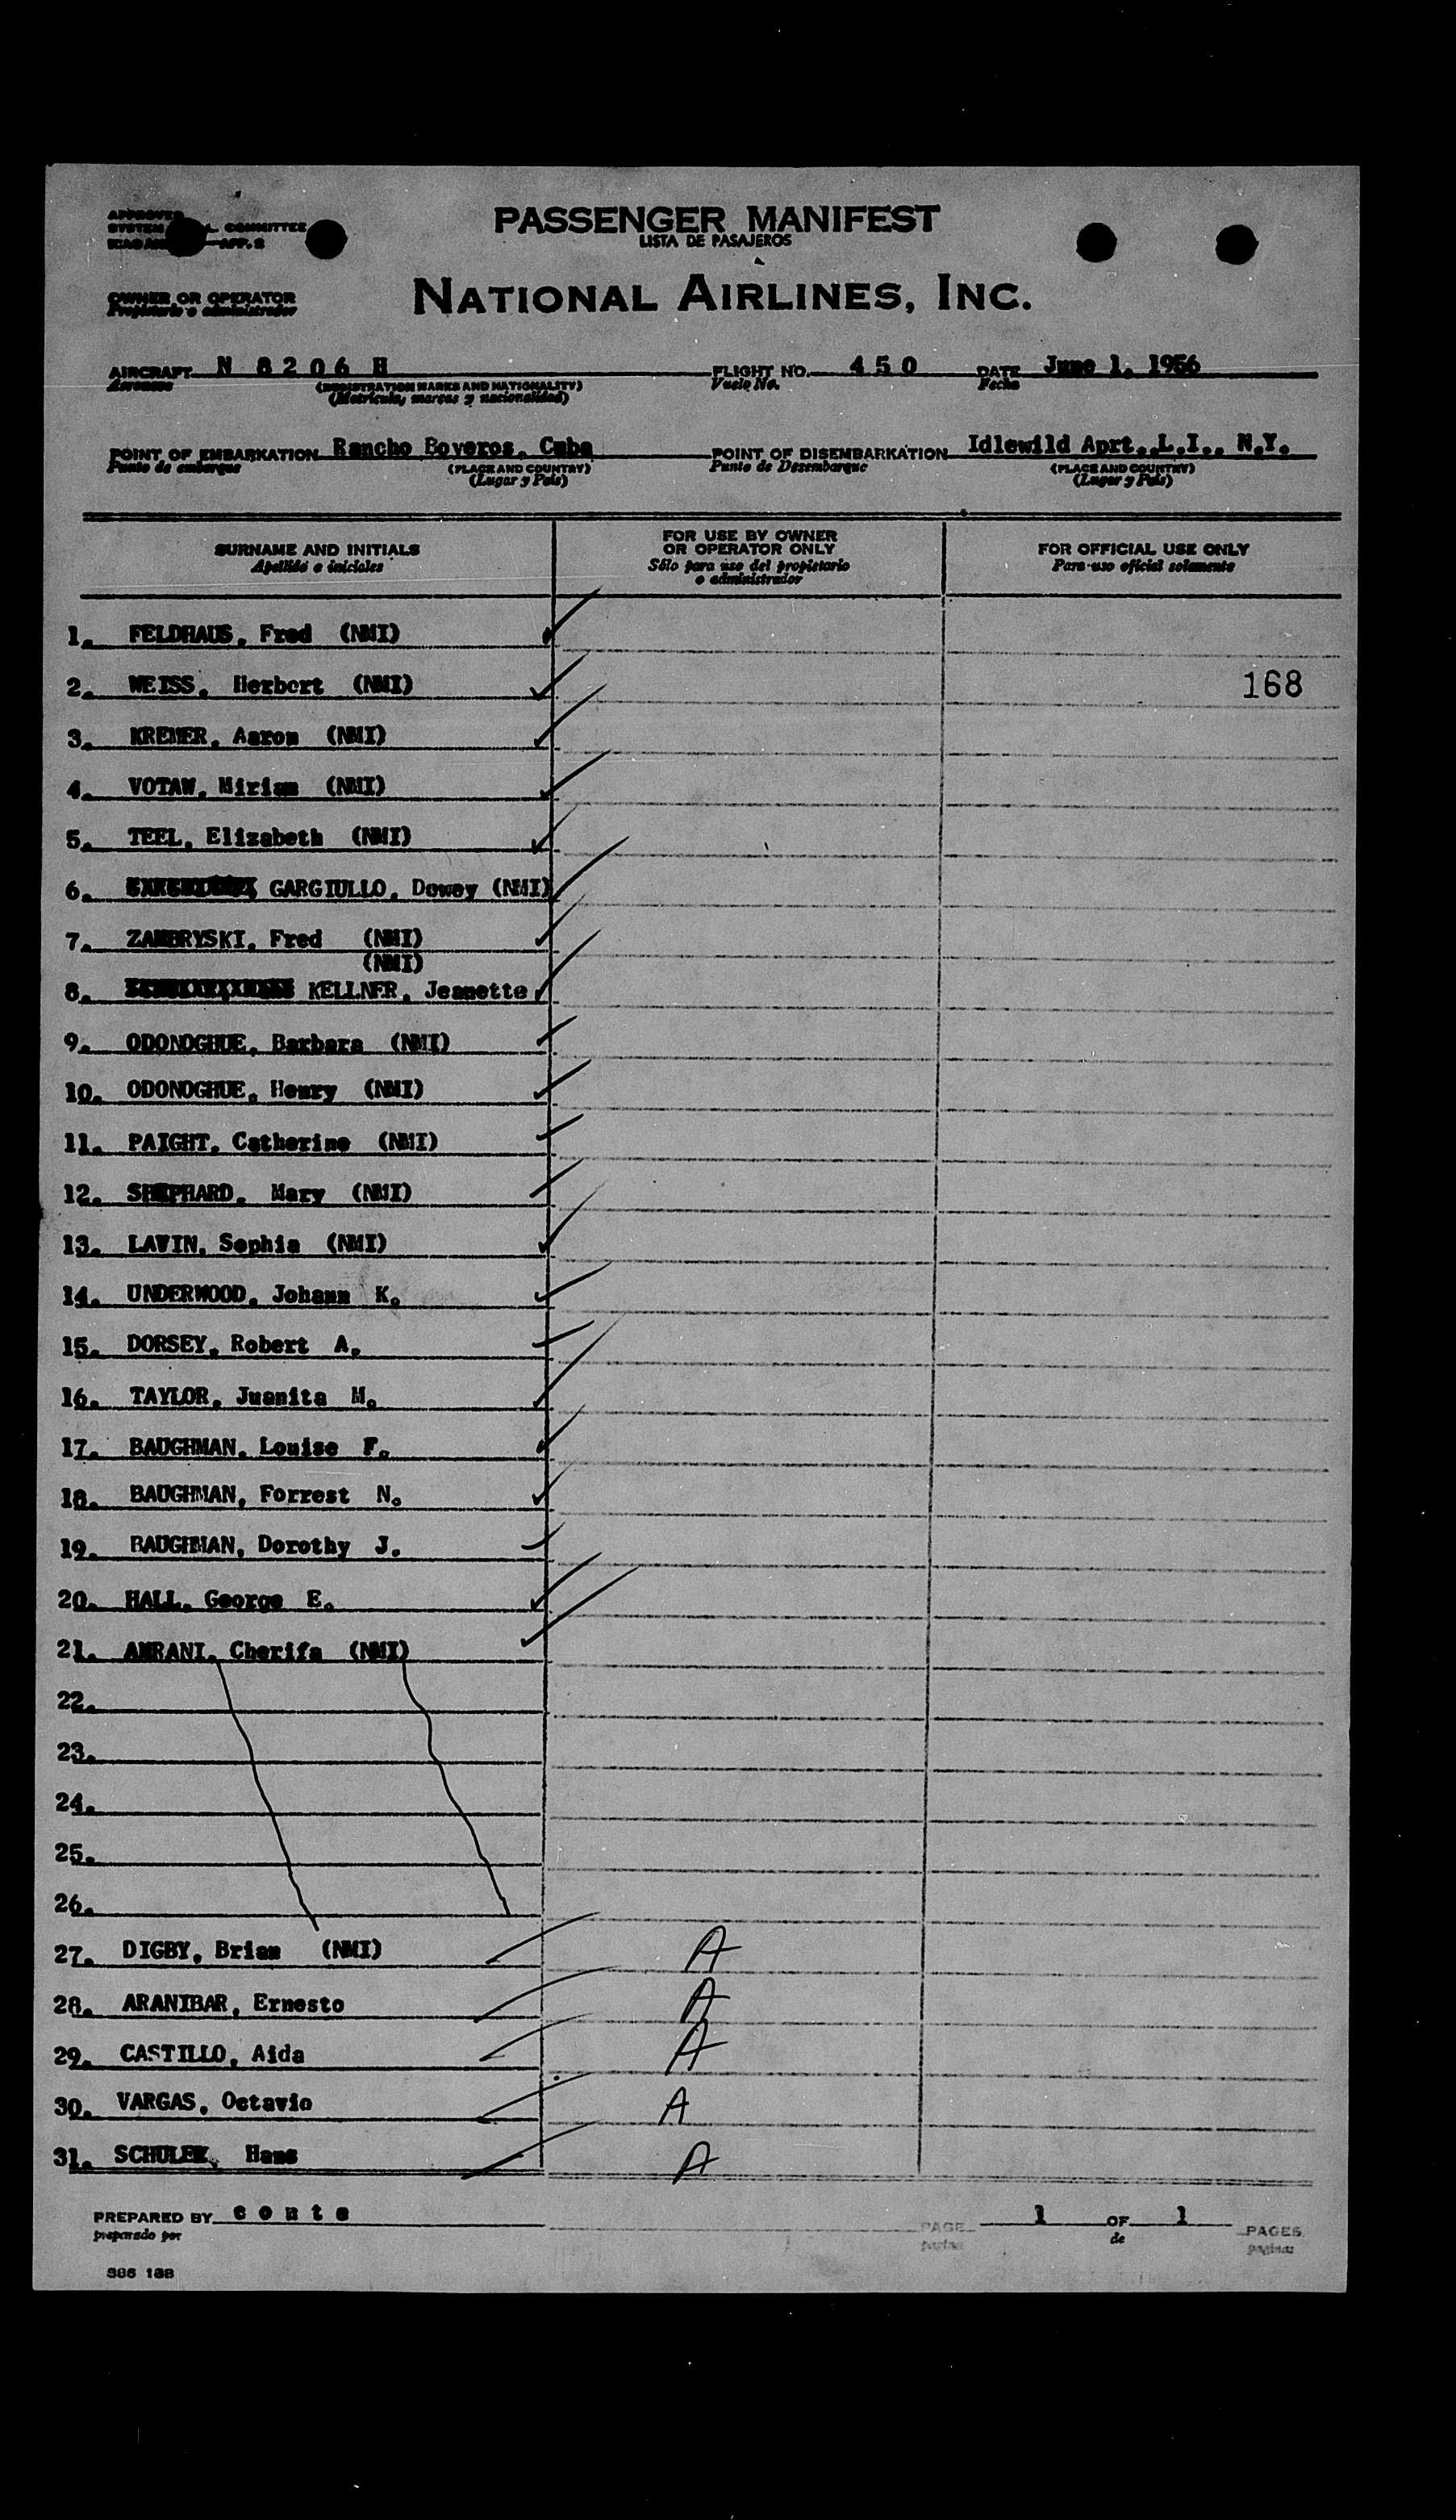 APPROVED
SYSTEM L. COMMITTEE
ICAO APP. 2
PASSENGER MANIFEST
LISTA DE PASAJEROS
OWNER OR OPERATOR
Propietario o administrador
NATIONAL AIRLINES, INC.
AIRCRAFT N 8206 H FLIGHT NO. 450 DATE June 1, 1956
Aeronave (REGISTRATION MARKS AND NATIONALITY) Vuelo No. Fecha
(Matrícula, marcas y nacionalidad)
POINT OF EMBARKATION Rancho Boyeros, Cuba POINT OF DISEMBARKATION Idlewild Aprt., L.I., N.Y.
Punto de embarque (PLACE AND COUNTRY) Punto de Desembarque (PLACE AND COUNTRY)
(Lugar y País) (Lugar y País)
SURNAME AND INITIALS
Apellido e iniciales
FOR USE BY OWNER
OR OPERATOR ONLY
Sólo para uso del propietario
o administrador
FOR OFFICIAL USE ONLY
Para uso oficial solamente
1. FELDHAUS, Fred (NMI)
2. WEISS, Herbert (NMI) 168
3. KREMER, Aaron (NMI)
4. VOTAW, Miriam (NMI)
5. TEEL, Elizabeth (NMI)
6. GARGIULLO, Dewey (NMI)
7. ZAMBRYSKI, Fred (NMI)
(NMI)
8. KELLNER, Jeanette
9. ODONOGHUE, Barbara (NMI)
10. ODONOGHUE, Henry (NMI)
11. PAIGHT, Catherine (NMI)
12. SHEPHARD, Mary (NMI)
13. LAVIN, Sophia (NMI)
14. UNDERWOOD, Johann K.
15. DORSEY, Robert A.
16. TAYLOR, Juanita M.
17. BAUGHMAN, Louise F.
18. BAUGHMAN, Forrest N.
19. BAUGHMAN, Dorothy J.
20. HALL, George E.
21. AMRANI, Cherifa (NMI)
22.
23.
24.
25.
26.
27. DIGBY, Brian (NMI) A
28. ARANIBAR, Ernesto A
29. CASTILLO, Aida A
30. VARGAS, Octavio A
31. Hans A
PREPARED BY conte PAGE 1 OF 1 PAGES
preparado por pagina de paginas
386 188